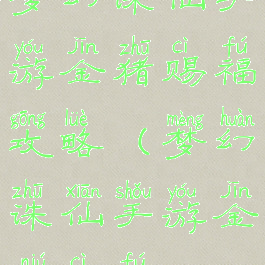 梦幻诛仙手
yóu Jīn zhū cì fú
游金猪赐福
gōng lüè mèng huàn
攻略（梦幻
zhū xiān shǒu yóu Jīn
诛仙手游金
zhū cì fú